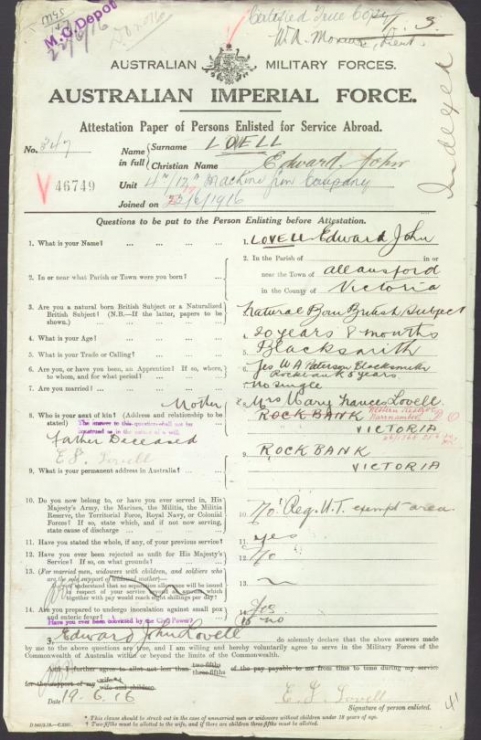 M.C. Depot
Certified True Copy
AUSTRALIAN MILITARY FORCES.
AUSTRALIAN IMPERIAL FORCE.
Attestation Paper of Persons Enlisted for Service Abroad.
Indexed
No. 347
Name in full Surname LOVELL
Christian Name Edward John
V 46749
Unit 4th/12th Machine Gun Company
Joined on 23/6/1916
Questions to be put to the Person Enlisting before Attestation.
1. What is your Name? ... 1. LOVELL Edward John
2. In or near what Parish or Town were you born? ... 2. In the Parish of in or
near the Town of Allansford
in the County of Victoria
3. Are you a natural born British Subject or a Naturalised British Subject? (N.B.—If the latter, papers to be shown.) 3. Natural Born British Subject
4. What is your Age? ... 4. 20 years 8 months
5. What is your Trade or Calling? ... 5. Blacksmith
6. Are you, or have you been, an Apprentice? If so, where, to whom, and for what period? 6. Yes W A Paterson Blacksmith
Rockbank 5 years
7. Are you married? ... 7. No Single
Mother
8. Who is your next of kin? (Address and relationship to be stated) 8. Mrs Mary Frances Lovell
ROCK BANK
VICTORIA
Father Deceased
E J Lovell
9. What is your permanent address in Australia? 9. ROCK BANK
VICTORIA
10. Do you now belong to, or have you ever served in, His Majesty's Army, the Marines, the Militia, the Militia Reserve, the Territorial Force, Royal Navy, or Colonial Forces? If so, state which, and if not now serving, state cause of discharge 10. No Reg. U.T. exempt area
11. Have you stated the whole, if any, of your previous service? 11. yes
12. Have you ever been rejected as unfit for His Majesty's Service? If so, on what grounds? 12. No
13. (For married men, widowers with children, and soldiers who are the sole support of widowed mother—
13. ~
14. Are you prepared to undergo inoculation against small pox and enteric fever? 14. Yes
Have you ever been convicted by the Civil Power? 15 no
I, Edward John Lovell do solemnly declare that the above answers made
by me to the above questions are true, and I am willing and hereby voluntarily agree to serve in the Military Forces of the
Commonwealth of Australia within or beyond the limits of the Commonwealth.
And I further agree to allot not less than two-fifths three-fifths of the pay payable to me from time to time during my service
for the support of my wife
Date 19.6.16
E. J. Lovell
Signature of person enlisted.
41
* This clause should be struck out in the case of unmarried men or widowers without children under 18 years of age.
† Two-fifths must be allotted to the wife, and if there are children three-fifths must be allotted.